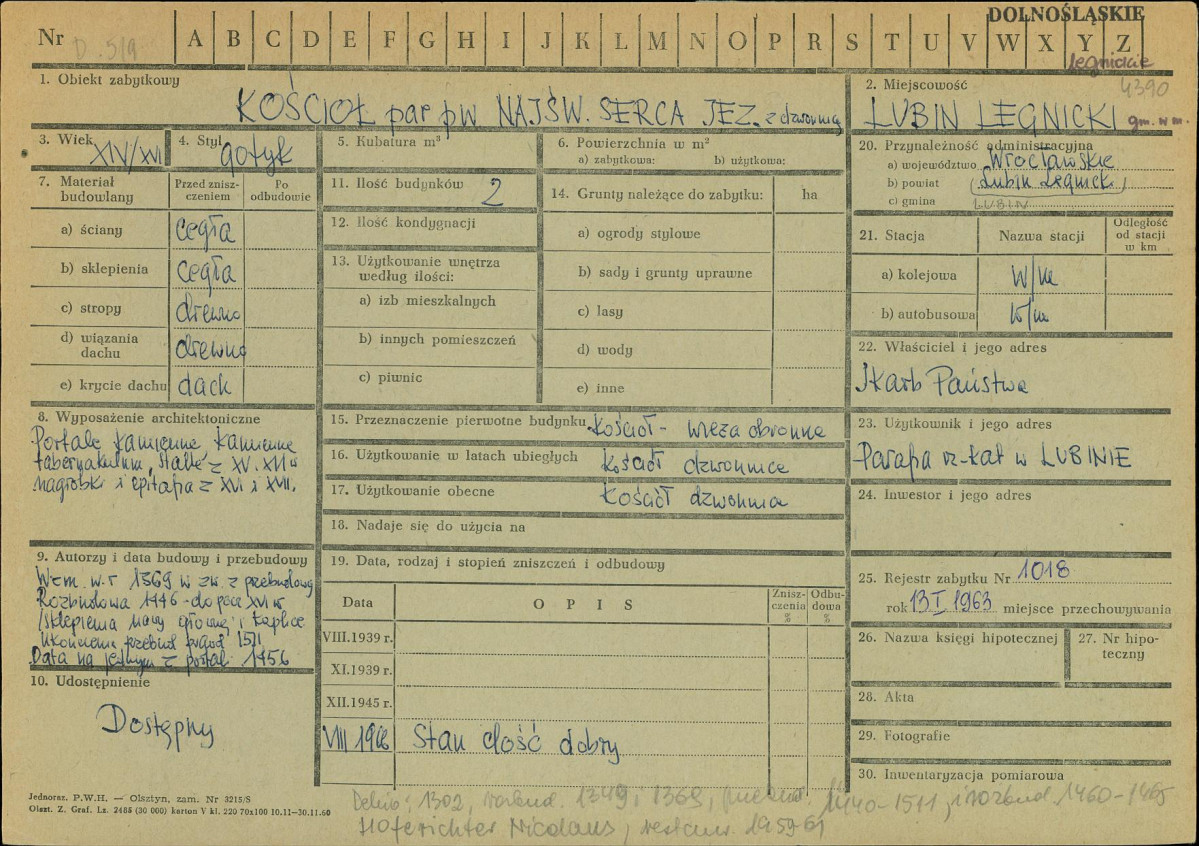 DOLNOŚLĄSKIE
Nr D. 519 A B C D E F G H I J K L M N O P R S T U V W X Y Z
legnickie
4390
1. Obiekt zabytkowy
KOŚCIOŁ par pw NAJŚW. SERCA JEZ. z dzwonnicą
2. Miejscowość
LUBIN LEGNICKI gm. w m.
3. Wiek XIV/XVI
4. Styl gotyk
5. Kubatura m³
6. Powierzchnia w m²
a) zabytkowa: b) użytkowa:
20. Przynależność administracyjna
a) województwo Wrocławskie
b) powiat (Lubin Legnicki)
c) gmina LUBIN
7. Materiał budowlany
Przed zniszczeniem
Po odbudowie
a) ściany cegła
b) sklepienia cegła
c) stropy drewno
d) wiązania dachu drewno
e) krycie dachu dach
11. Ilość budynków 2
12. Ilość kondygnacji
13. Użytkowanie wnętrza według ilości:
a) izb mieszkalnych
b) innych pomieszczeń
c) piwnic
14. Grunty należące do zabytku: ha
a) ogrody stylowe
b) sady i grunty uprawne
c) lasy
d) wody
e) inne
21. Stacja
Nazwa stacji
Odległość od stacji w km
a) kolejowa w/m
b) autobusowa w/m
22. Właściciel i jego adres
Skarb Państwa
8. Wyposażenie architektoniczne
Portale kamienne kamienne
tabernakulum, stalle z XV. XVI w
nagrobki i epitafia z XVI i XVII.
15. Przeznaczenie pierwotne budynku kościół - wieża obronna
16. Użytkowanie w latach ubiegłych kościół dzwonnica
17. Użytkowanie obecne kościół dzwonnica
18. Nadaje się do użycia na
23. Użytkownik i jego adres
Parafia rz-kat w LUBINIE
24. Inwestor i jego adres
9. Autorzy i data budowy i przebudowy
Wzm. w. r 1369 w zw. z przebudową
Rozbudowa 1446 - do pocz XVI w
/sklepienia nawy głównej i kaplice
Ukończenie przebud 1511
Data na jednym z portali 1456
19. Data, rodzaj i stopień zniszczeń i odbudowy
Data
OPIS
Zniszczenia %
Odbudowa %
VIII.1939 r.
XI.1939 r.
XII.1945 r.
VIII 1968 Stan dość dobry
25. Rejestr zabytku Nr 1018
rok 13 I 1963 miejsce przechowywania
26. Nazwa księgi hipotecznej
27. Nr hipoteczny
28. Akta
29. Fotografie
30. Inwentaryzacja pomiarowa
10. Udostępnienie
Dostępny
Jednoraz. P.W.H. — Olsztyn, zam. Nr 3215/S
Olszt. Z. Graf. Lz. 2485 (30 000) karton V kl. 220 70x100 10.11—30.11.60
Dehio: 1302, rozbud. 1349 i 1369, przebud. 1440-1511, i rozbud. 1460-1465
Hoferichter Nicolaus, restaur. 1959-61